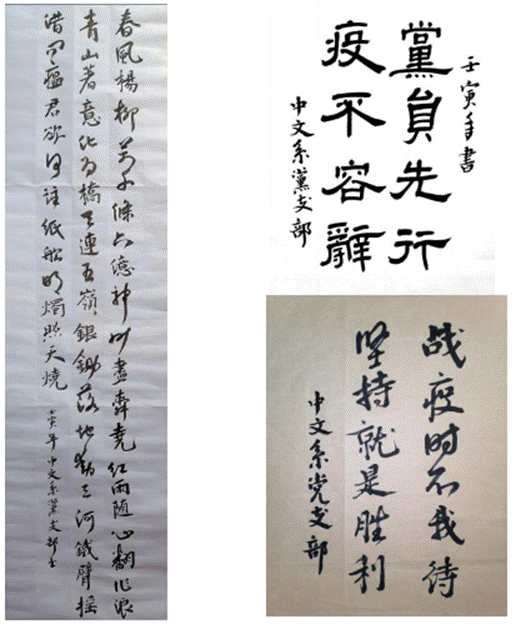 春風楊柳万千條六億神州盡舜堯红雨随心翻作浪
青山著意化为橋天連五嶺銀鋤落地動三河鐵臂摇
借問瘟君欲何往紙船明燭照天燒
壬寅年中文系党支部书
壬寅年書
黨員先行
疫不容辭
中文系黨支部
战疫时不我待
坚持就是胜利
中文系党支部